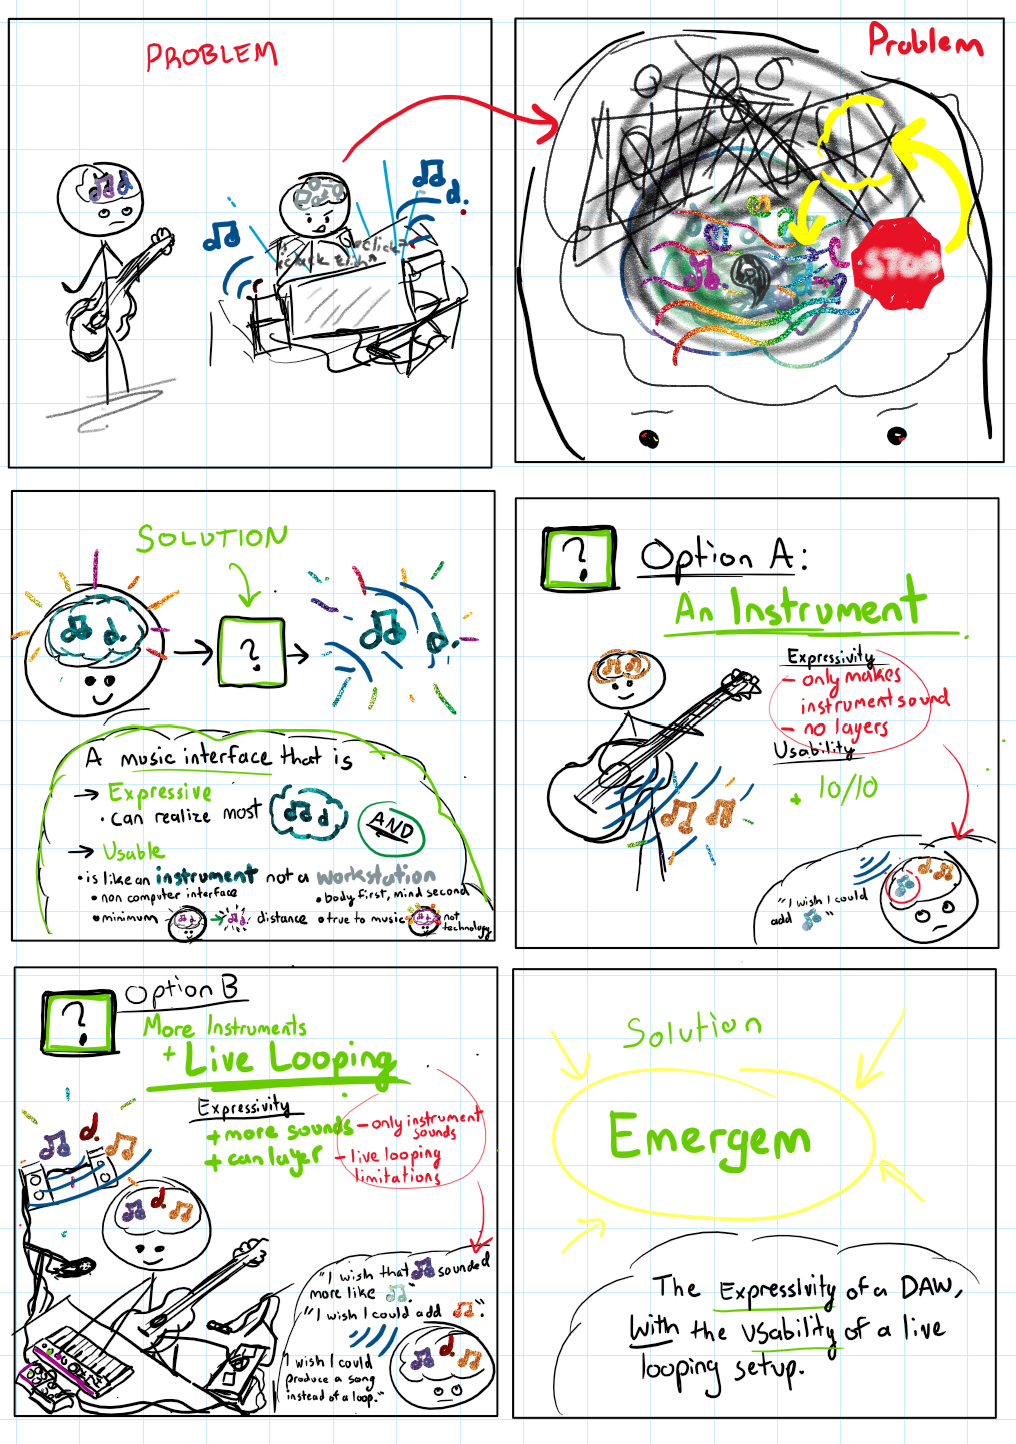 PROBLEM
Problem
STOP
SOLUTION
?
A music interface that is
→ Expressive
• can realize most
AND
→ Usable
• is like an instrument not a workstation
• non computer interface
• body first, mind second
• minimum → distance
• true to music not technology
?
Option A:
An Instrument
Expressivity
- only makes
instrument sound
- no layers
Usability
+ 10/10
"I wish I could
add "
?
Option B
More Instruments
+ Live Looping
Expressivity
+ more sounds
+ can layer
- only instrument
sounds
- live looping
limitations
"I wish that sounded
more like ".
"I wish I could add ".
"I wish I could
produce a song
instead of a loop."
Solution
Emergem
The Expressivity of a DAW,
with the usability of a live
looping setup.